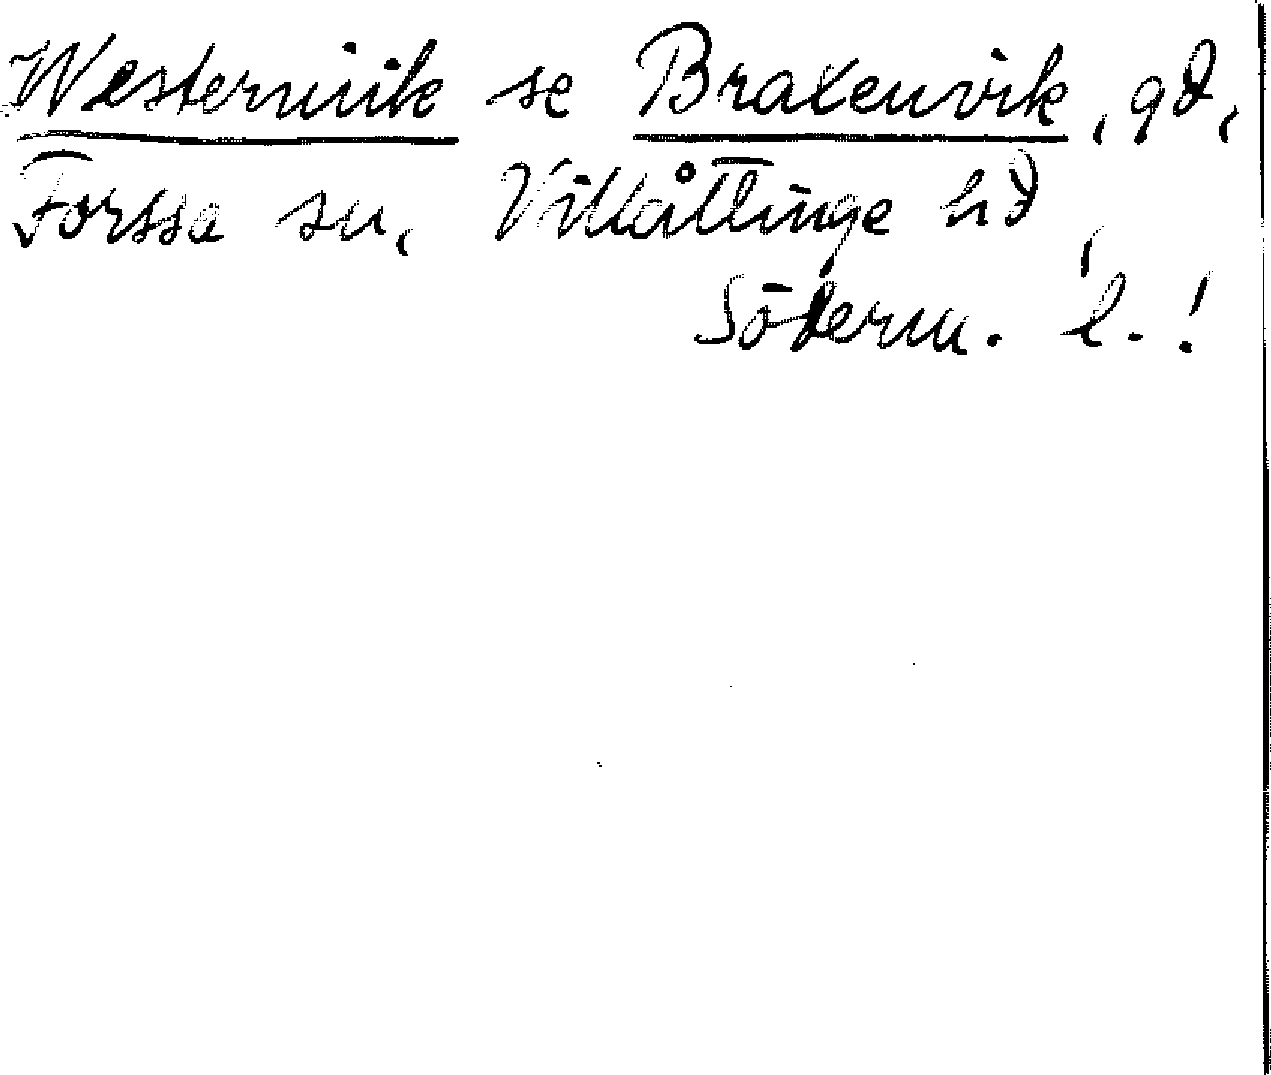 Westerwiik se Braxenvik, gd,
Forssa sn, Villåttinge hd,
Söderm. l.!